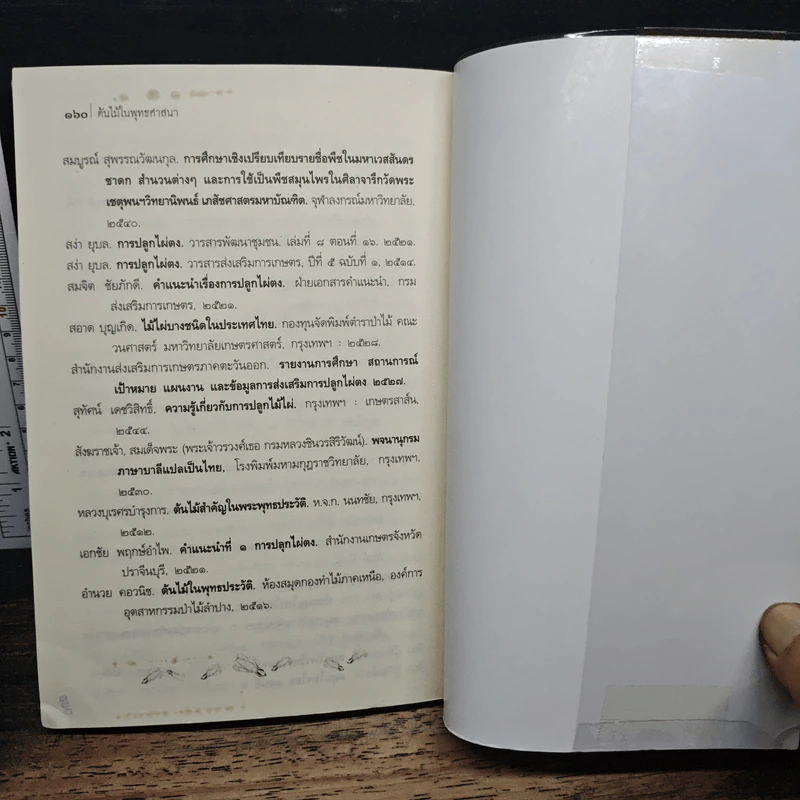 ๑๖๐ | ต้นไม้ในพุทธศาสนา
สมบูรณ์ สุพรรณวัฒนกุล. การศึกษาเชิงเปรียบเทียบรายชื่อพืชในมหาเวสสันดร
ชาดก สำนวนต่างๆ และการใช้เป็นพืชสมุนไพรในศิลาจารึกวัดพระ
เชตุพนฯวิทยานิพนธ์ เภสัชศาสตรมหาบัณฑิต. จุฬาลงกรณ์มหาวิทยาลัย,
๒๕๔๐.
สง่า ยุบล. การปลูกไผ่ตง. วารสารพัฒนาชุมชน. เล่มที่ ๘ ตอนที่ ๑๖. ๒๕๒๑.
สง่า ยุบล. การปลูกไผ่ตง. วารสารส่งเสริมการเกษตร, ปีที่ ๕ ฉบับที่ ๑, ๒๕๑๔.
สมจิต ชัยภักดี. คำแนะนำเรื่องการปลูกไผ่ตง. ฝ่ายเอกสารคำแนะนำ, กรม
ส่งเสริมการเกษตร, ๒๕๒๑.
สอาด บุญเกิด. ไม้ไผ่บางชนิดในประเทศไทย. กองทุนจัดพิมพ์ตำราป่าไม้ คณะ
วนศาสตร์ มหาวิทยาลัยเกษตรศาสตร์, กรุงเทพฯ : ๒๕๒๘.
สำนักงานส่งเสริมการเกษตรภาคตะวันออก. รายงานการศึกษา สถานการณ์
เป้าหมาย แผนงาน และข้อมูลการส่งเสริมการปลูกไผ่ตง ๒๕๒๗.
สุทัศน์ เดชวิสิทธิ์. ความรู้เกี่ยวกับการปลูกไม้ไผ่. กรุงเทพฯ : เกษตรสาส์น,
๒๕๔๔.
สังฆราชเจ้า, สมเด็จพระ (พระเจ้าวรวงศ์เธอ กรมหลวงชินวรสิริวัฒน์). พจนานุกรม
ภาษาบาลีแปลเป็นไทย, โรงพิมพ์มหามกุฎราชวิทยาลัย, กรุงเทพฯ,
๒๕๓๐.
หลวงบุเรศรบำรุงการ. ต้นไม้สำคัญในพระพุทธประวัติ. ห.จ.ก. นนทชัย, กรุงเทพฯ,
๒๕๑๒.
เอกชัย พฤกษ์อำไพ. คำแนะนำที่ ๑ การปลูกไผ่ตง. สำนักงานเกษตรจังหวัด
ปราจีนบุรี, ๒๕๒๑.
อำนวย คอวนิช. ต้นไม้ในพุทธประวัติ. ห้องสมุดกองทำไม้ภาคเหนือ, องค์การ
อุตสาหกรรมป่าไม้ลำปาง, ๒๕๑๖.